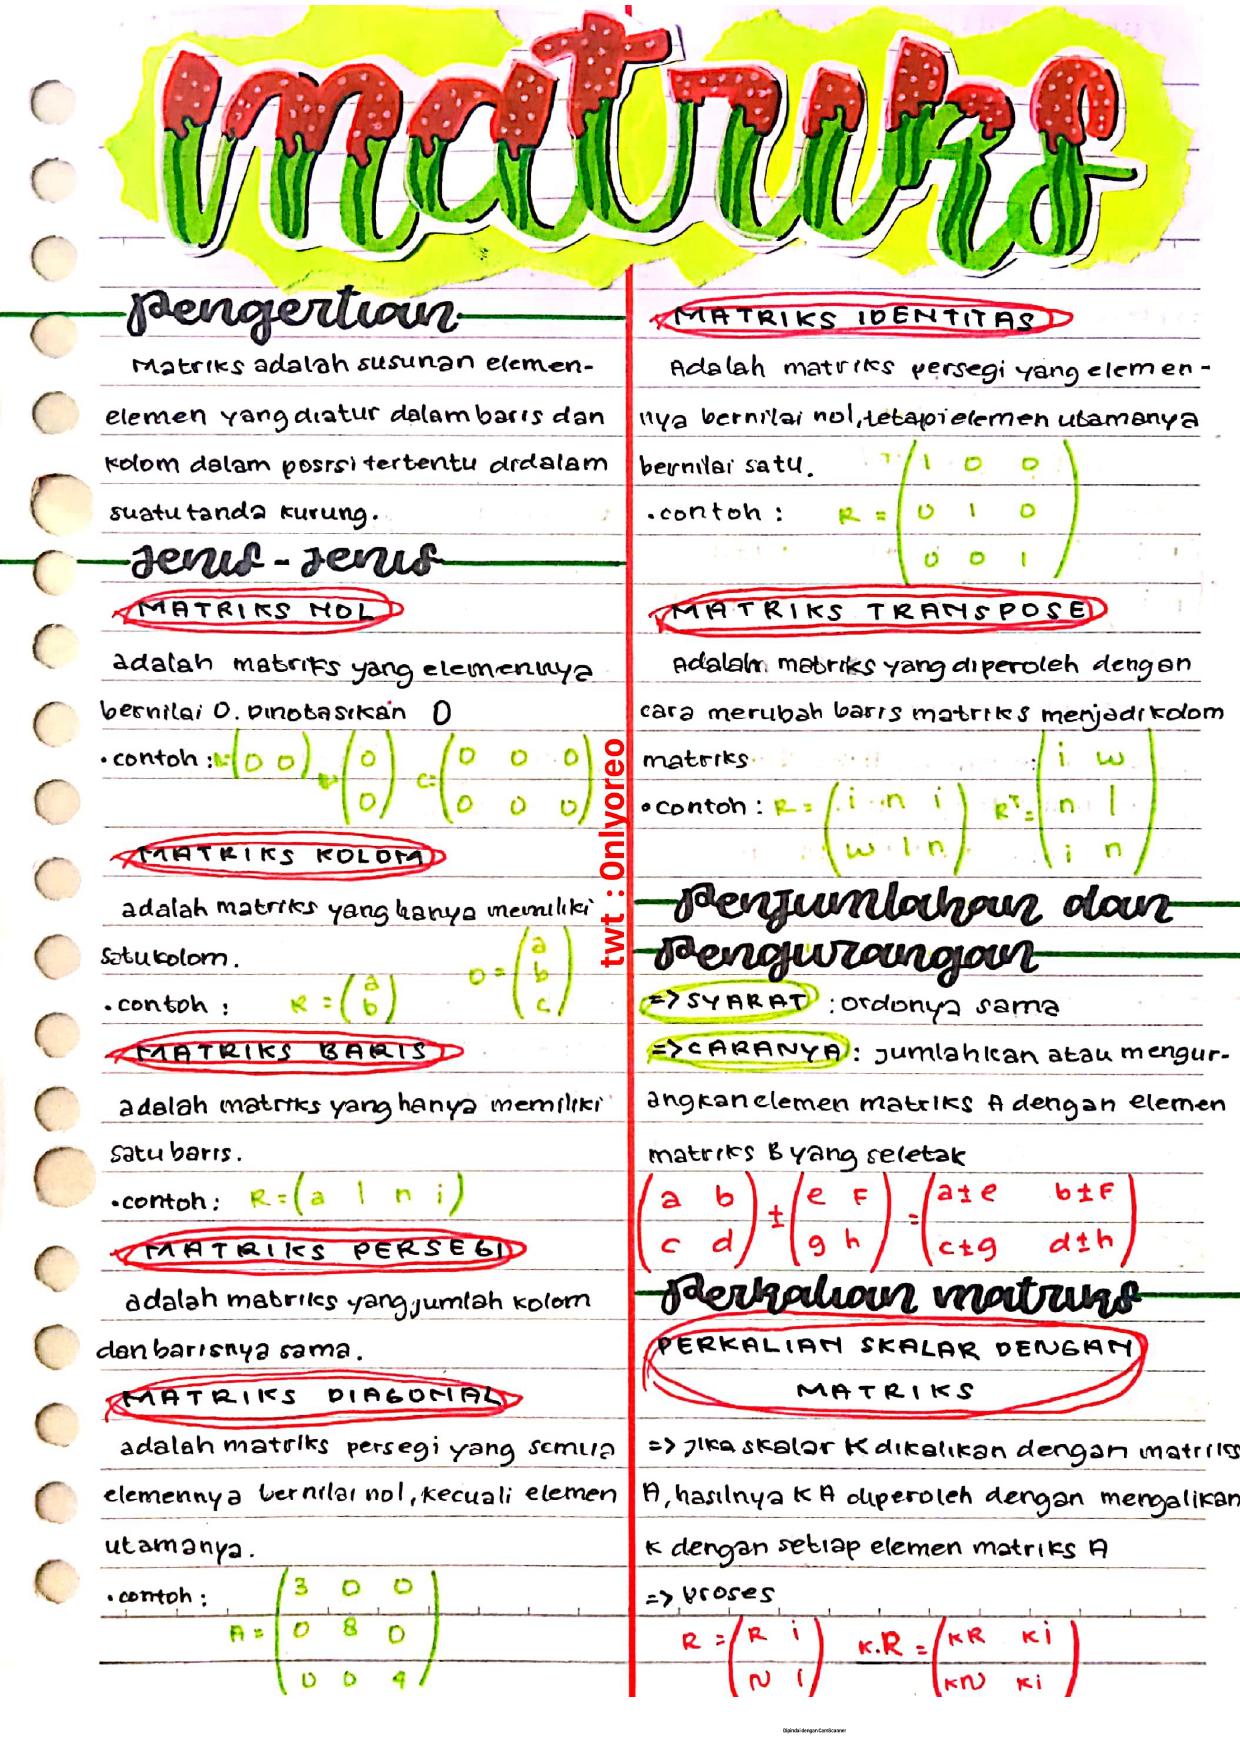 matriks
Pengertian
Matriks adalah susunan elemen-
elemen yang diatur dalam baris dan
kolom dalam posisi tertentu didalam
suatu tanda kurung.
Jenis - Jenis
MATRIKS NOL
adalah matriks yang elemennya
bernilai 0. Dinotasikan 0
• contoh : (0 0) (0 C= (0 0 0
0) 0 0 0)
MATRIKS KOLOM
adalah matriks yang hanya memiliki
satu kolom.
• contoh : R = (a D = (a
b) b
c)
MATRIKS BARIS
adalah matriks yang hanya memiliki
satu baris.
• contoh : R = (a l n i)
MATRIKS PERSEGI
adalah matriks yang jumlah kolom
dan barisnya sama.
MATRIKS DIAGONAL
adalah matriks persegi yang semua
elemennya bernilai nol, kecuali elemen
utamanya.
• contoh :
A = (3 0 0
0 8 0
0 0 9)
twt : Onlyoreo
MATRIKS IDENTITAS
Adalah matriks persegi yang elemen-
nya bernilai nol, tetapi elemen utamanya
bernilai satu.
• contoh : R = (1 0 0
0 1 0
0 0 1)
MATRIKS TRANSPOSE
Adalah matriks yang diperoleh dengan
cara merubah baris matriks menjadi kolom
matriks
• contoh : R = (i n i
w l n)
Rᵀ = (i w
n l
i n)
Penjumlahan dan
Pengurangan
=> SYARAT : ordonya sama
=> CARANYA : jumlahkan atau mengur-
angkan elemen matriks A dengan elemen
matriks B yang seletak
(a b ± (e F = (a±e b±F
c d) g h) c±g d±h)
Perkalian matriks
PERKALIAN SKALAR DENGAN
MATRIKS
=> jika skalar K dikalikan dengan matriks
A, hasilnya KA diperoleh dengan mengalikan
K dengan setiap elemen matriks A
=> proses
R = (R i K.R = (KR Ki
N i) KN Ki)
Dipindai dengan CamScanner